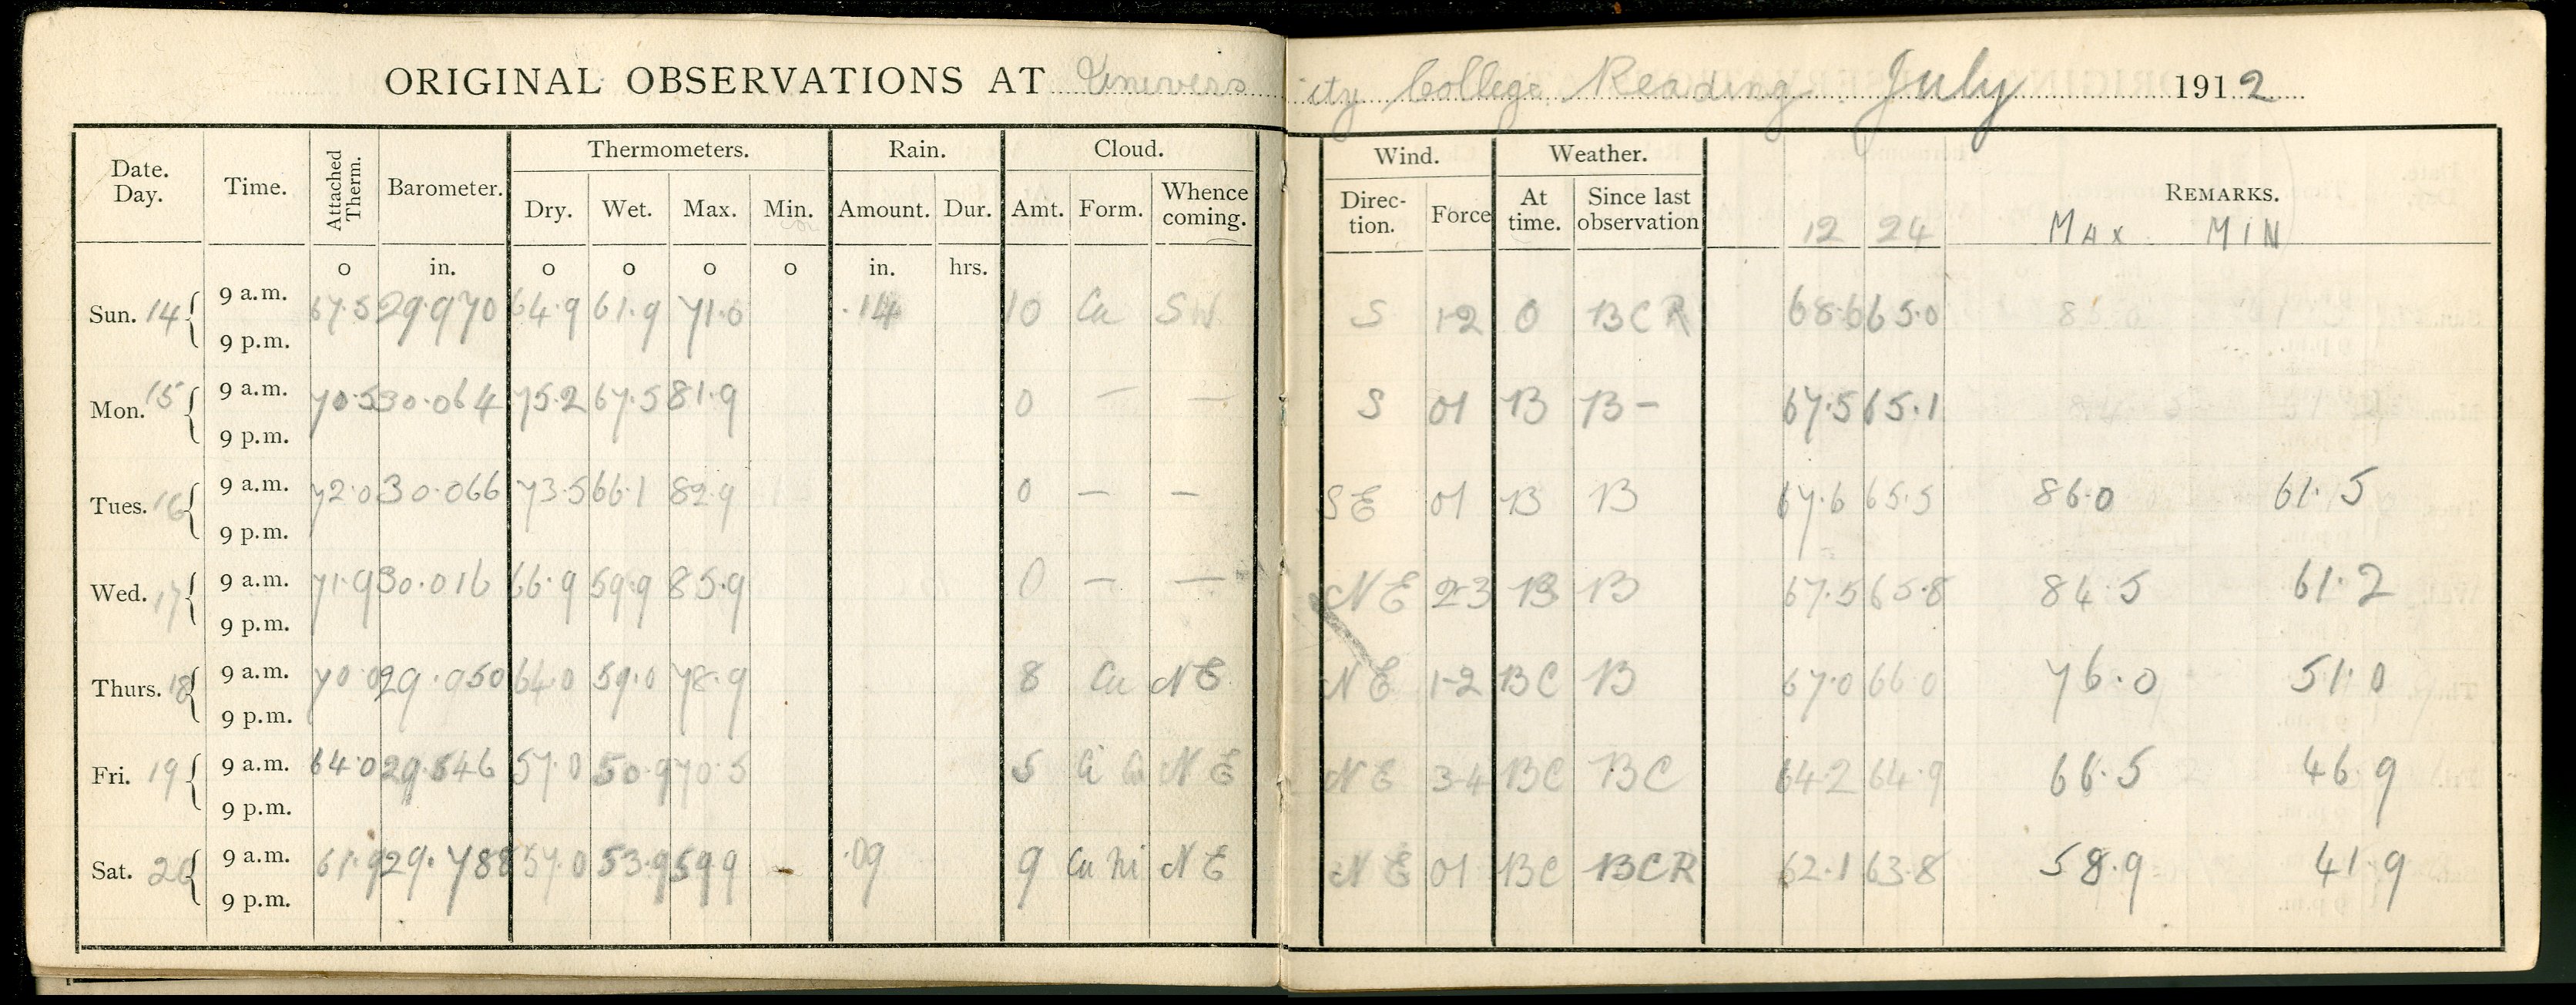 ORIGINAL OBSERVATIONS AT University College Reading July 1912
Date. Day. Time. Attached Therm. Barometer. Thermometers. Rain. Cloud. Wind. Weather. REMARKS.
Dry. Wet. Max. Min. Amount. Dur. Amt. Form. Whence coming. Direc- tion. Force At time. Since last observation 12 24 MAX MIN
o in. o o o o in. hrs.
Sun. 14 { 9 a.m. 67.5 29.970 64.9 61.9 71.0 .14 10 Cu SW S 1-2 O BCR 68.6 65.0
9 p.m.
Mon. 15 { 9 a.m. 70.5 30.064 75.2 67.5 81.9 0 — — S 01 B B - 67.5 65.1
9 p.m.
Tues. 16 { 9 a.m. 72.0 30.066 73.5 66.1 82.9 0 — — SE 01 B B 67.6 65.5 86.0 61.5
9 p.m.
Wed. 17 { 9 a.m. 71.9 30.016 66.9 59.9 85.9 0 — — NE 2-3 B B 67.5 65.8 84.5 61.2
9 p.m.
Thurs. 18 { 9 a.m. 70.0 29.950 64.0 59.0 78.9 8 Cu NE NE 1-2 BC B 67.0 66.0 76.0 51.0
9 p.m.
Fri. 19 { 9 a.m. 64.0 29.846 57.0 50.9 70.5 5 Ci Cu NE NE 3-4 BC BC 64.2 64.9 66.5 46.9
9 p.m.
Sat. 20 { 9 a.m. 61.9 29.788 57.0 53.9 59.9 .09 9 Cu Ni NE NE 01 BC BCR 62.1 63.8 58.9 41.9
9 p.m.